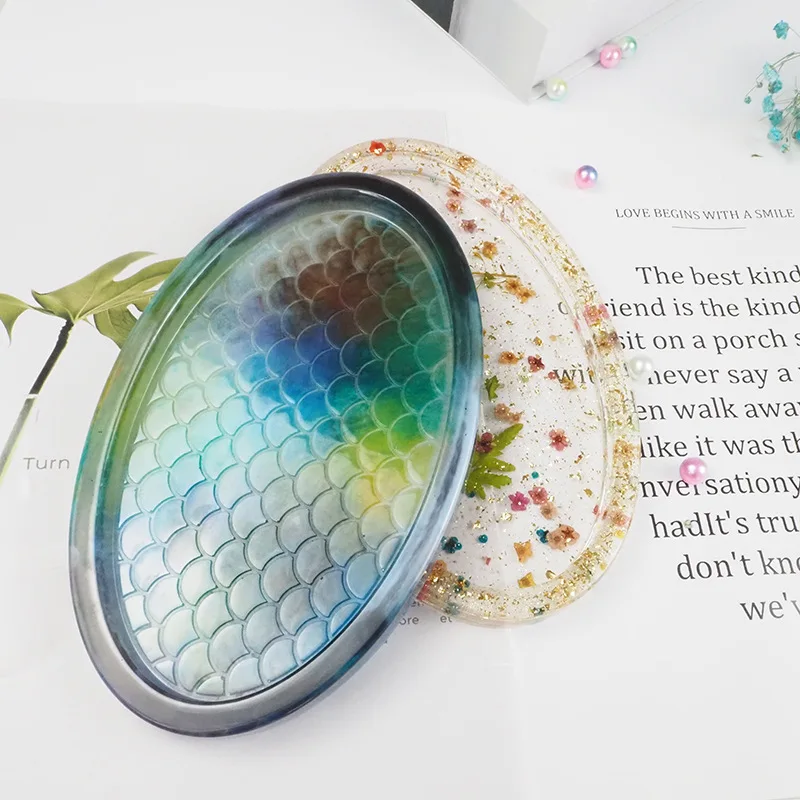 LOVE BEGINS WITH A SMILE
The best kind
riend is the kind
sit on a porch
never say a
en walk awa
like it was th
sationy
hadIt's tru
don't kno
we'v
Turn
ore et